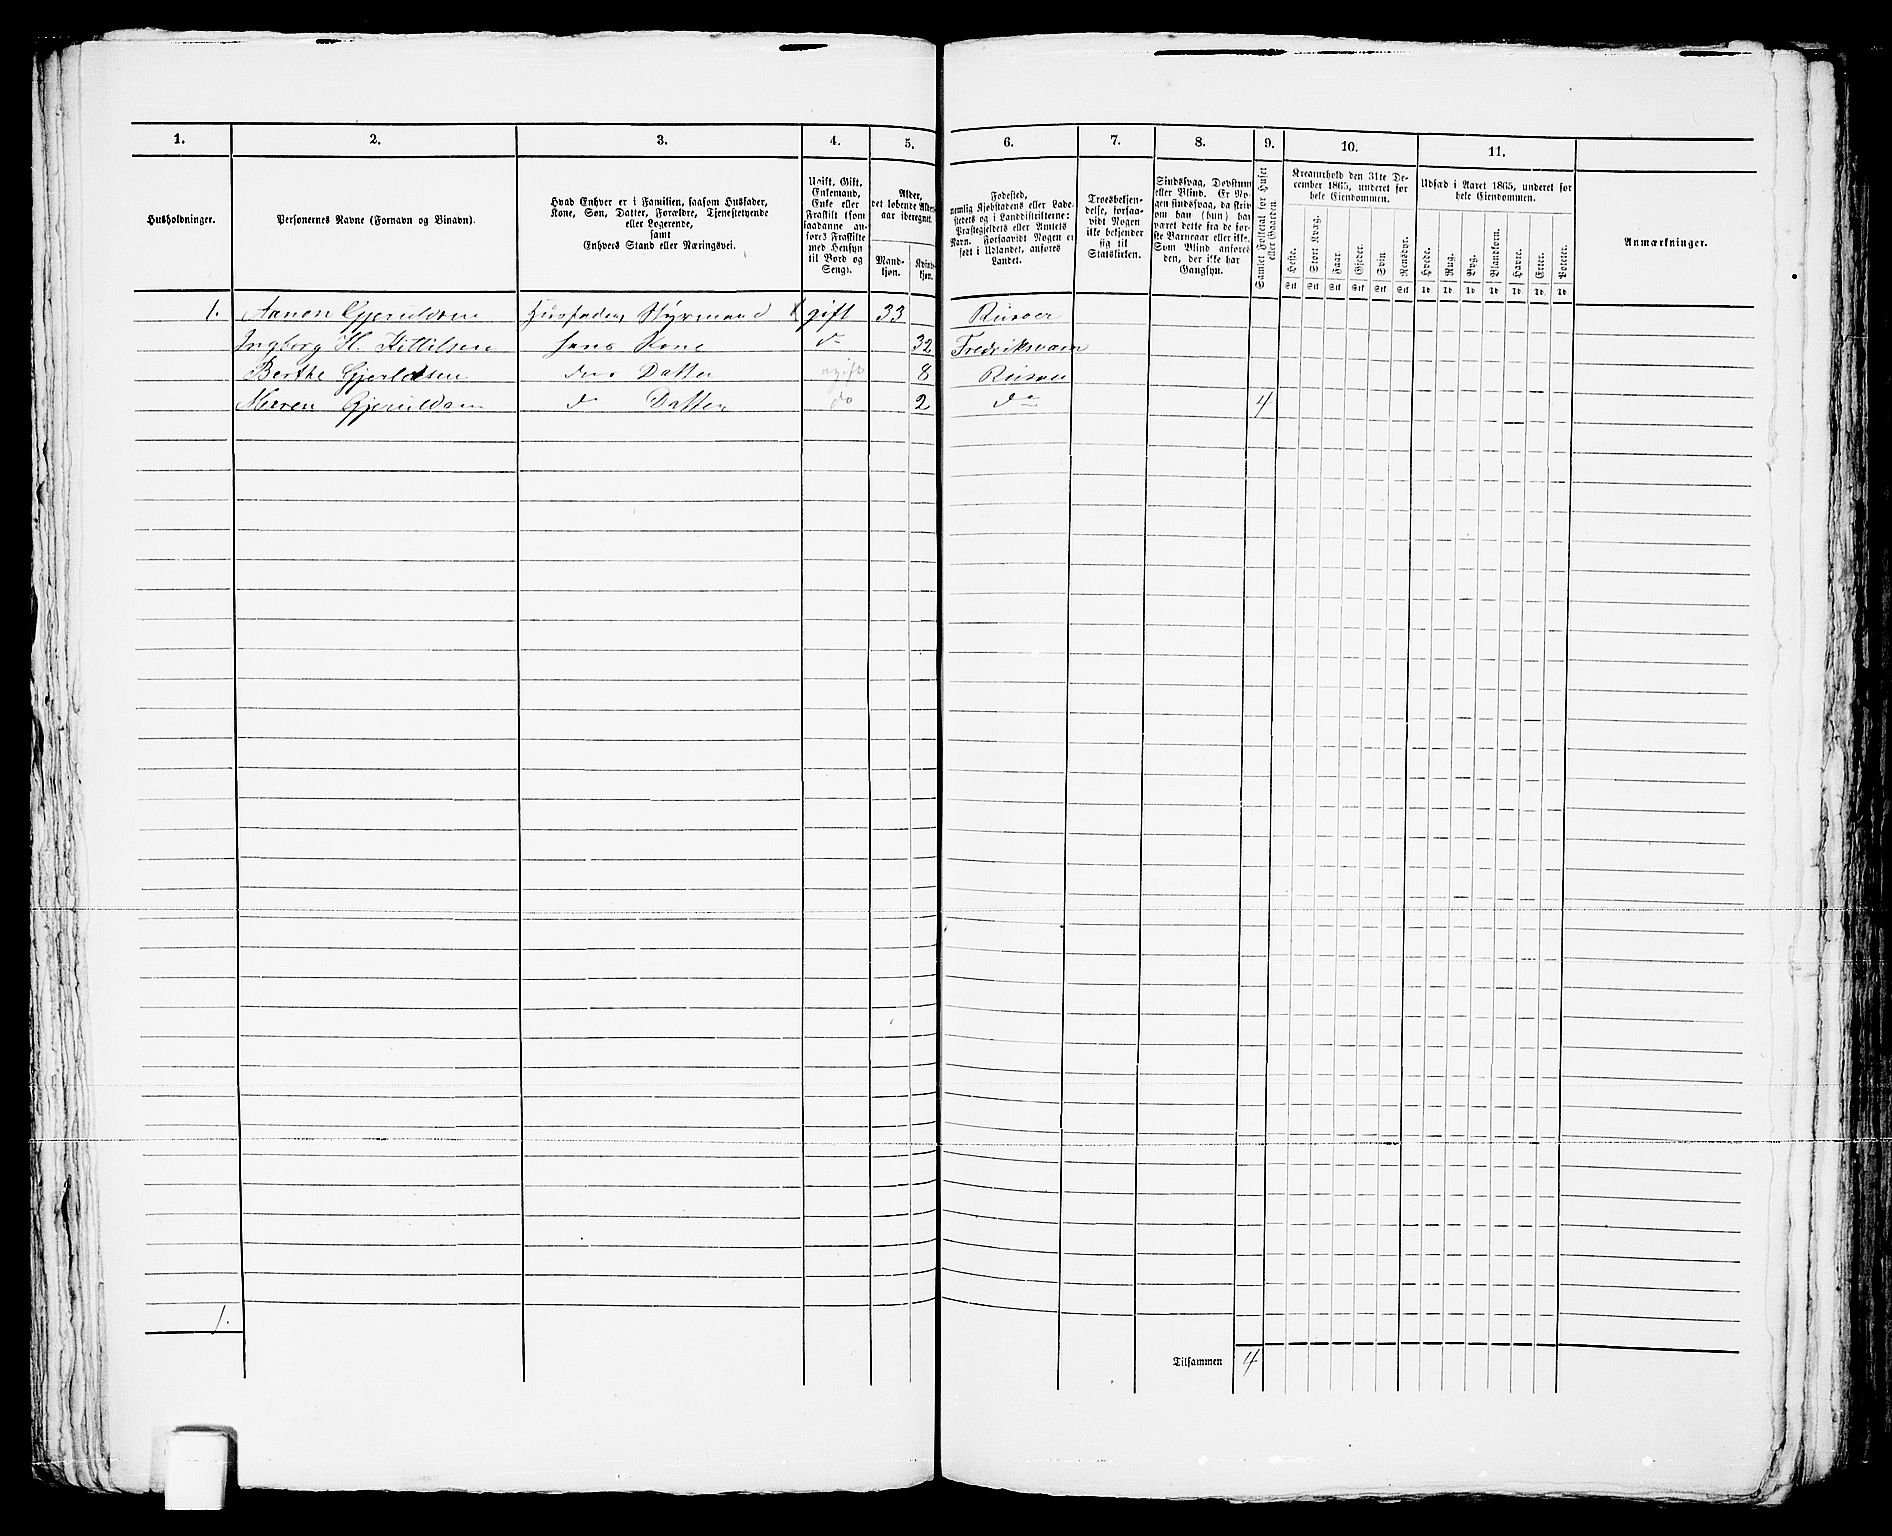 1. 2. 3. 4. 5. 6. 7. 8. 9. 10. 11.
Husholdninger.
Personernes Navne (Fornavn og Binavn).
Hvad Enhver er i Familien, saasom Husfader,
Kone, Søn, Datter, Forældre, Tjenestetyende
eller Logerende,
samt
Enhvers Stand eller Næringsvei.
Ugift, Gift,
Enkemand,
Enke eller
Fraskilt (som
saadanne an-
føres Fraskilte
med Hensyn
til Bord og
Seng).
Alder,
det løbende Alders-
aar iberegnet.
Mand-
kjøn.
Kvinde-
kjøn.
Fødested,
nemlig Kjøbstadens eller Lade-
stedets og i Landdistrikterne:
Præstegjeldets eller Amtets
Navn. Forsaavidt Nogen er
født i Udlandet, anføres
Landet.
Troesbekjen-
delse, forsaa-
vidt Nogen
ikke bekjender
sig til
Statskirken.
Sindssvag, Døvstum
eller Blind. Er No-
gen sindssvag, da skriv
om han (hun) har
været dette fra de før-
ste Barneaar eller ikke.
Som Blind anføres
den, der ikke har
Gangsyn.
Samlet Folketal for Huset
eller Gaarden.
Kreaturhold den 31te De-
cember 1865, underet for
hele Eiendommen.
Heste. Stort Kvæg. Faar. Gjeder. Svin. Rensdyr.
Stk Stk Stk Stk Stk Stk
Udsæd i Aaret 1865, underet for
hele Eiendommen.
Hvede. Rug. Byg. Blandkorn. Havre. Erter. Poteter.
Td. Td. Td. Td. Td. Td. Td
Anmærkninger.
1. Aanon Gjeruldsen Husfader, Styrmand gift 33 Riisøer
Ingborg H. Kittilsen hans Kone do 32 Fredriksværn
Berthe Gjerldsen des Datter ugift 8 Riisøer
Gjeruldsen d Datter do 2 do 4
1.
Tilsammen 4